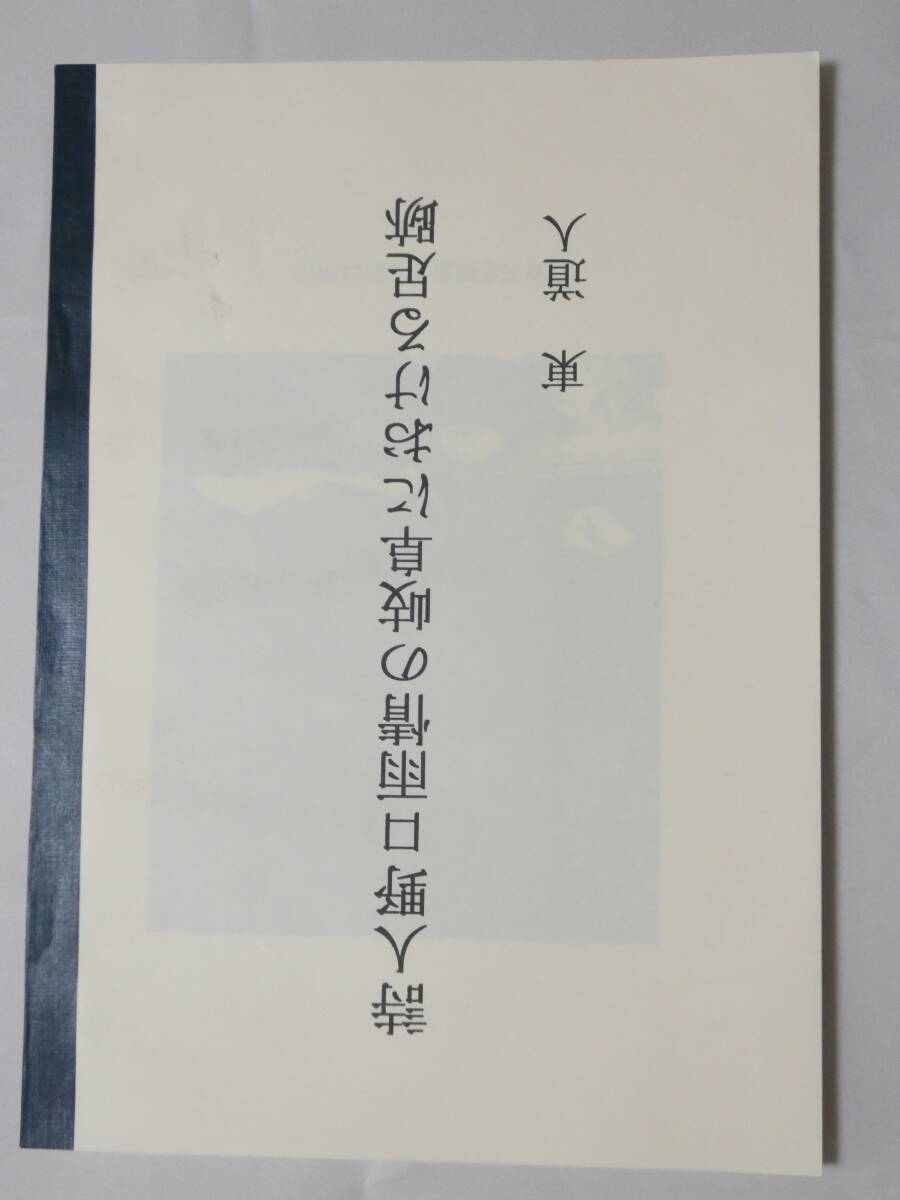 詩人野口雨情の岐阜における足跡
東 道人